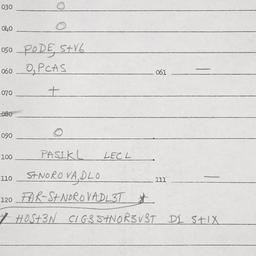 030 O
040 O
050 PODE, S+V6
060 O, PCAS 061 —
070 +
080
090 O
100 PASIKL LECL
110 S+NOROVA, DLO 111 —
120 FAR-S+NOROVADL3T
HOS+3N C1G3S+NOR3V3T D1 S+1X